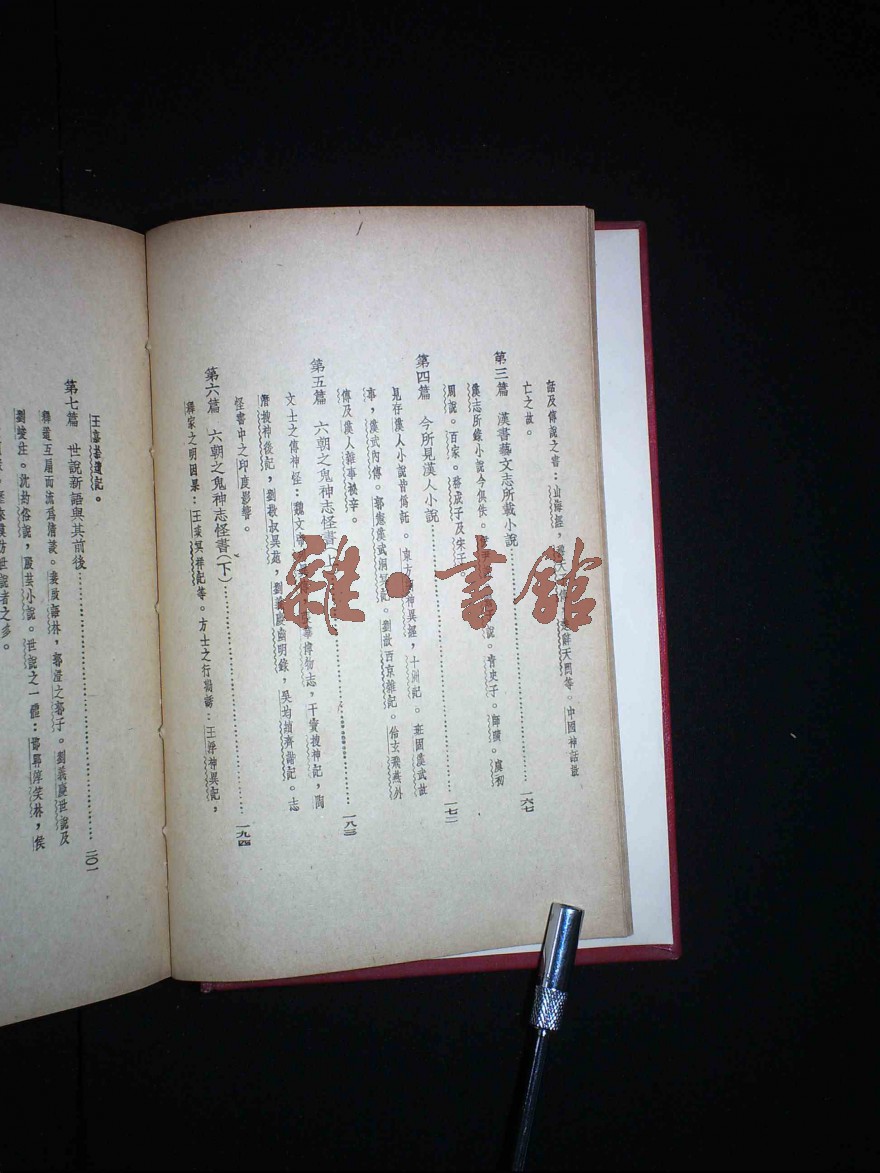 話及傳說之書：山海經，穆天子傳，楚辭天問等。中國神話散
亡之故。
第三篇　漢書藝文志所載小說……一六七
漢志所錄小說今俱佚。說。青史子。師曠。虞初
周說。百家。務成子及宋子
第四篇　今所見漢人小說……一七二
見存漢人小說皆偽託。東方朔神異經，十洲記。班固漢武故
事，漢武內傳。郭憲漢武洞冥記。劉歆西京雜記。伶玄飛燕外
傳及漢人雜事祕辛。
第五篇　六朝之鬼神志怪書（上）……一八三
文士之傳神怪：魏文帝博物志，干寶搜神記，陶
潛搜神後記，劉敬叔異苑，劉義慶幽明錄，吳均續齊諧記。志
怪書中之印度影響。
第六篇　六朝之鬼神志怪書（下）……一九四
釋家之明因果：王琰冥祥記等。方士之行勸誘：王浮神異記，
王嘉拾遺記。
第七篇　世說新語與其前後……二〇一
釋道互扇而流為清談。裴啟語林，郭澄之郭子。劉義慶世說及
劉孝標注。沈約俗說，殷芸小說。世說之一體：邯鄲淳笑林，侯
世說者之多。
雜·書館